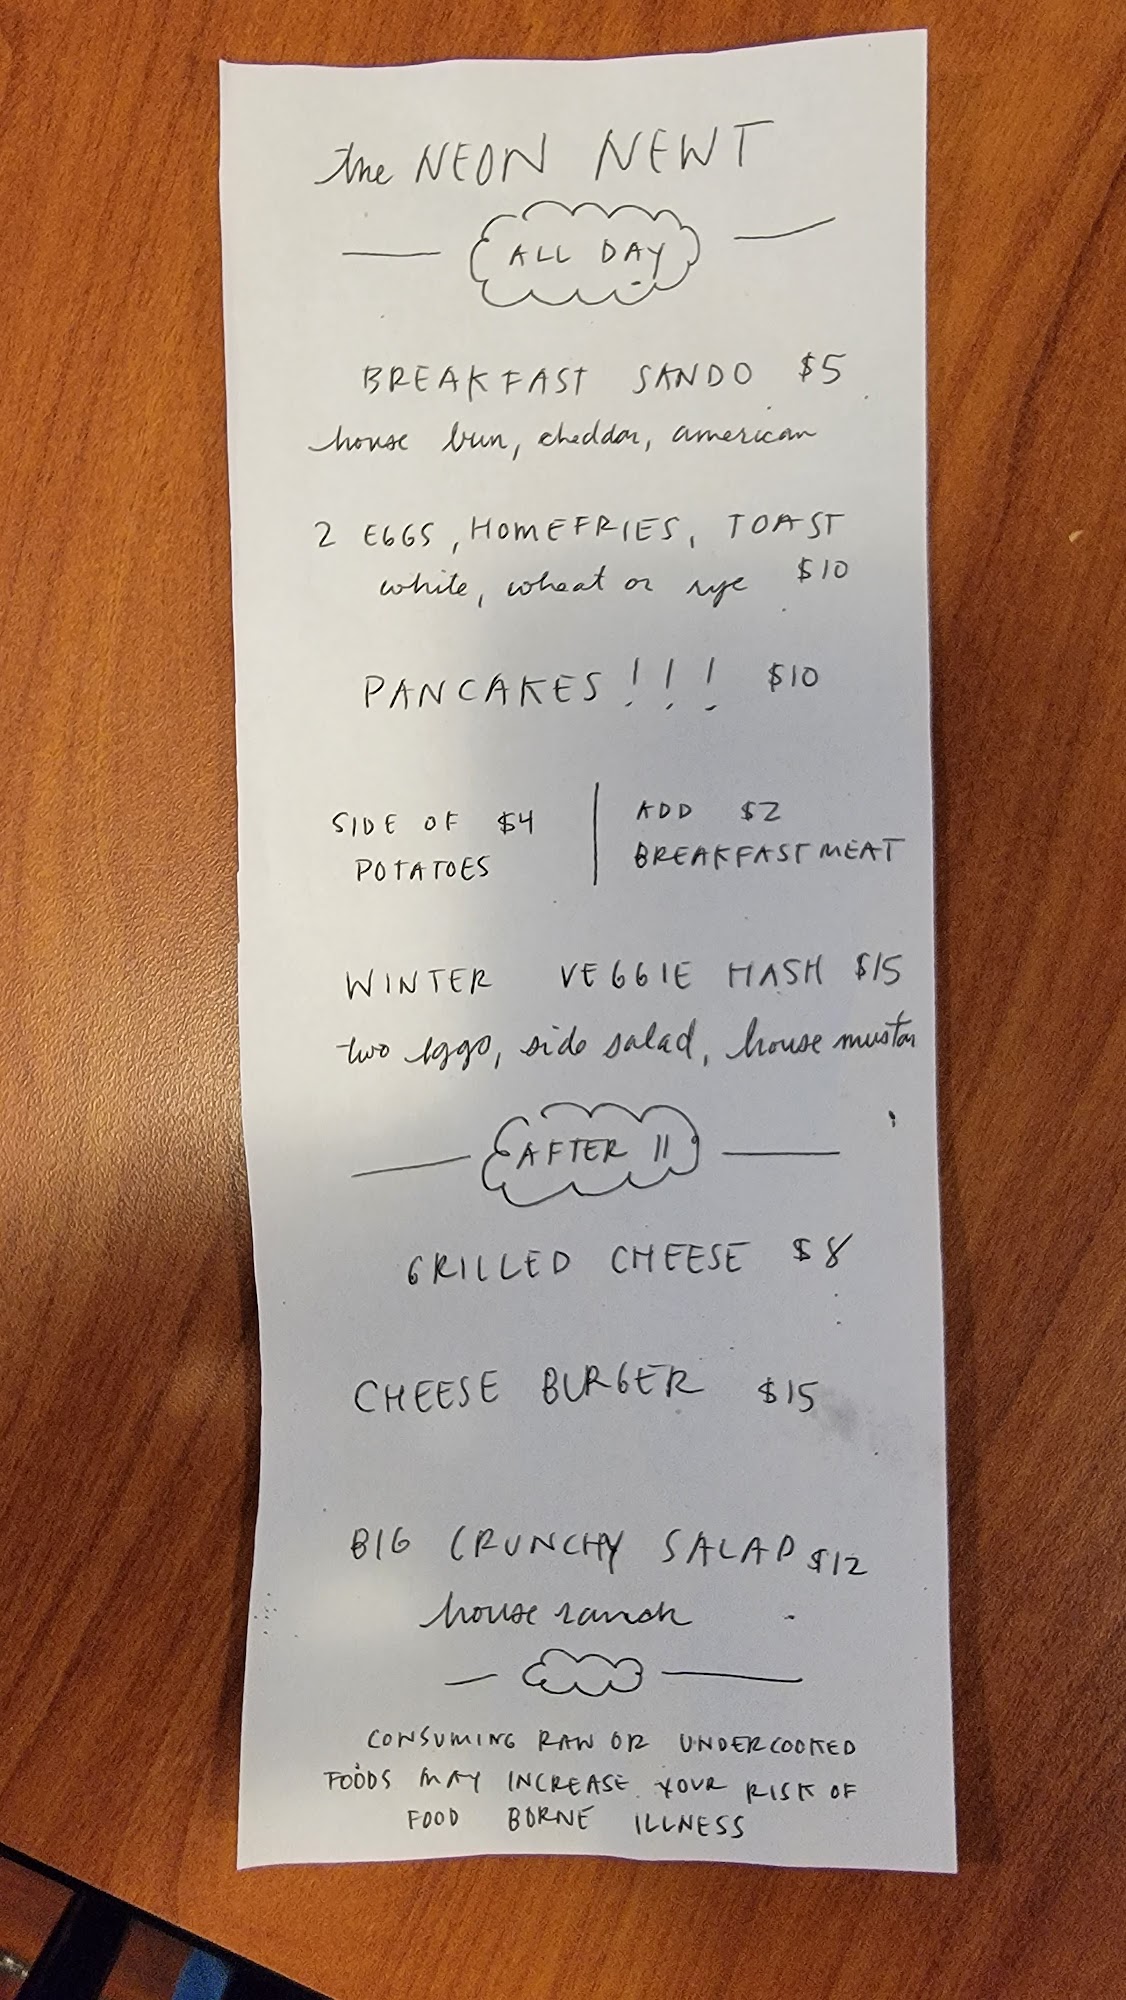 the NEON NEWT
ALL DAY
BREAKFAST SANDO $5
house bun, cheddar, american
2 EGGS, HOMEFRIES, TOAST
white, wheat or rye $10
PANCAKES!!! $10
SIDE OF $4
POTATOES
ADD $2
BREAKFAST MEAT
WINTER VEGGIE HASH $15
two eggs, side salad, house mustar
AFTER 11
GRILLED CHEESE $8
CHEESE BURGER $15
BIG CRUNCHY SALAD $12
house ranch
CONSUMING RAW OR UNDERCOOKED
FOODS MAY INCREASE YOUR RISK OF
FOOD BORNE ILLNESS